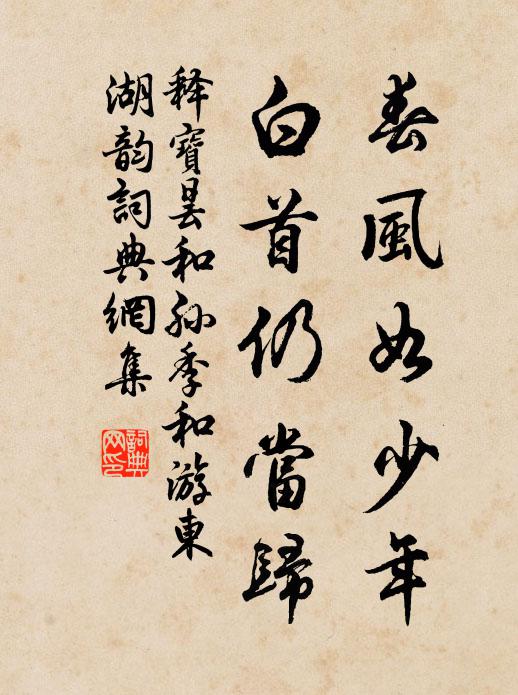 春風如少年
白首仍當歸
释寶曇和孙季和游東
湖韵詞典網集
詞典
网印